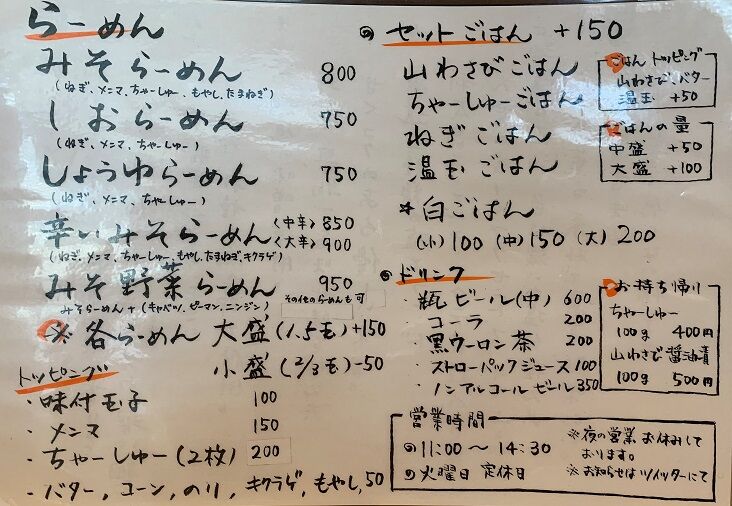 らーめん
みそらーめん 800
(ねぎ、メンマ、ちゃーしゅー、もやし、たまねぎ)
しおらーめん 750
(ねぎ、メンマ、ちゃーしゅー)
しょうゆらーめん 750
(ねぎ、メンマ、ちゃーしゅー)
辛いみそらーめん 〈中辛〉850
〈大辛〉900
(ねぎ、メンマ、ちゃーしゅー、もやし、たまねぎ、キクラゲ)
みそ野菜らーめん 950
みそらーめん+(キャベツ、ピーマン、ニンジン) その他のらーめんも可
※各らーめん 大盛(1.5玉)+150
小盛(2/3玉)-50
トッピング
・味付玉子 100
・メンマ 150
・ちゃーしゅー(2枚) 200
・バター、コーン、のり、キクラゲ、もやし、50
セットごはん +150
山わさびごはん
ちゃーしゅーごはん
ねぎごはん
温玉ごはん
*白ごはん
(小)100 (中)150 (大)200
ごはんトッピング
山わさび、バター
温玉 +50
ごはんの量
中盛 +50
大盛 +100
ドリンク
・瓶ビール(中) 600
・コーラ 200
・黒ウーロン茶 200
・ストローパックジュース 100
・ノンアルコールビール 350
お持ち帰り
ちゃーしゅー
100g 400円
山わさび醤油漬
100g 500円
営業時間
11:00〜14:30
火曜日 定休日
※夜の営業お休みして
おります。
※お知らせはツイッターにて